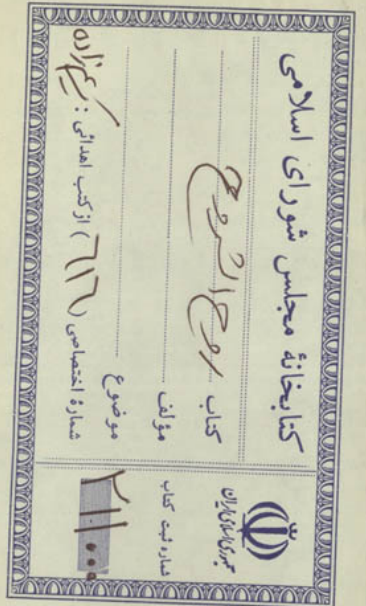 کتابخانهٔ مجلس شورای اسلامی
کتاب روح الشروح
مؤلف
موضوع
شمارهٔ اختصاصی (٦١٦) از کتب اهدائی: کریم‌زاده
جمهوری اسلامی ایران
شماره ثبت کتاب